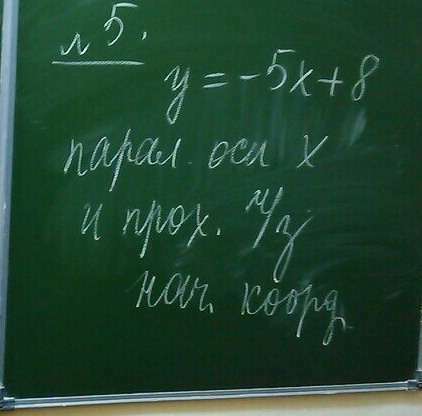 № 5.
y = -5x + 8
парал. оси x
и прох. ч/з
нач. коорд.